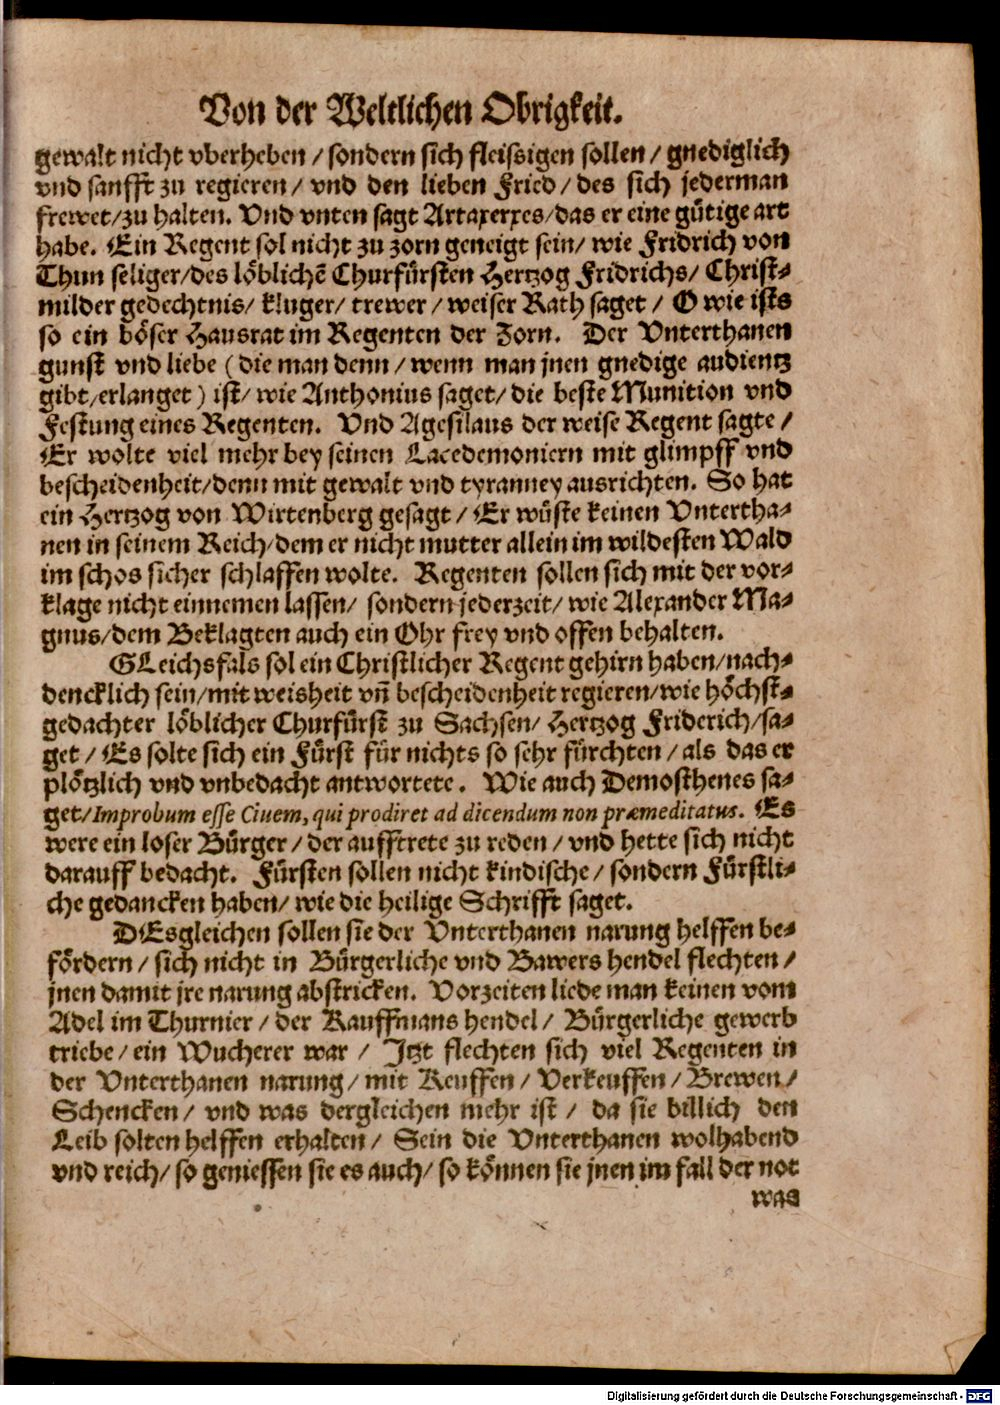 Von der Weltlichen Obrigkeit.
gewalt nicht vberheben / sondern sich fleissigen sollen / gnediglich
vnd sanfft zu regieren / vnd den lieben Fried / des sich jederman
frewet / zu halten. Vnd vnten sagt Artaxerxes / das er eine gütige art
habe. Ein Regent sol nicht zu zorn geneigt sein / wie Fridrich von
Thun seliger / des löblichẽ Churfürsten Hertzog Fridrichs / Christ-
milder gedechtnis / kluger / trewer / weiser Rath saget / O wie ists
so ein böser Hausrat im Regenten der Zorn. Der Vnterthanen
gunst vnd liebe ( die man denn / wenn man jnen gnedige audientz
gibt / erlanget ) ist / wie Anthonius saget / die beste Munition vnd
Festung eines Regenten. Vnd Agesilaus der weise Regent sagte /
Er wolte viel mehr bey seinen Lacedemoniern mit glimpff vnd
bescheidenheit / denn mit gewalt vnd tyranney ausrichten. So hat
ein Hertzog von Wirtenberg gesagt / Er wüste keinen Vntertha-
nen in seinem Reich / dem er nicht mutter allein im wildesten Wald
im schos sicher schlaffen wolte. Regenten sollen sich mit der vor-
klage nicht einnemen lassen / sondern jederzeit / wie Alexander Ma-
gnus / dem Beklagten auch ein Ohr frey vnd offen behalten.
GLeichsfals sol ein Christlicher Regent gehirn haben / nach-
dencklich sein / mit weisheit vñ bescheidenheit regieren / wie höchst-
gedachter löblicher Churfürst zu Sachsen / Hertzog Friderich / sa-
get / Es solte sich ein Fürst für nichts so sehr fürchten / als das er
plötzlich vnd vnbedacht antwortete. Wie auch Demosthenes sa-
get / Improbum esse Ciuem, qui prodiret ad dicendum non præmeditatus. Es
were ein loser Bürger / der aufftrete zu reden / vnd hette sich nicht
darauff bedacht. Fürsten sollen nicht kindische / sondern Fürstli-
che gedancken haben / wie die heilige Schrifft saget.
DEsgleichen sollen sie der Vnterthanen narung helffen be-
fördern / sich nicht in Bürgerliche vnd Bawers hendel flechten /
jnen damit jre narung abstricken. Vorzeiten liede man keinen vom
Adel im Thurnier / der Kauffmans hendel / Bürgerliche gewerb
triebe / ein Wucherer war / Jtzt flechten sich viel Regenten in
der Vnterthanen narung / mit Keuffen / Verkeuffen / Brewen /
Schencken / vnd was dergleichen mehr ist / da sie billich den
Leib solten helffen erhalten / Sein die Vnterthanen wolhabend
vnd reich / so geniessen sie es auch / so können sie jnen im fall der not
was
Digitalisierung gefördert durch die Deutsche Forschungsgemeinschaft - DFG